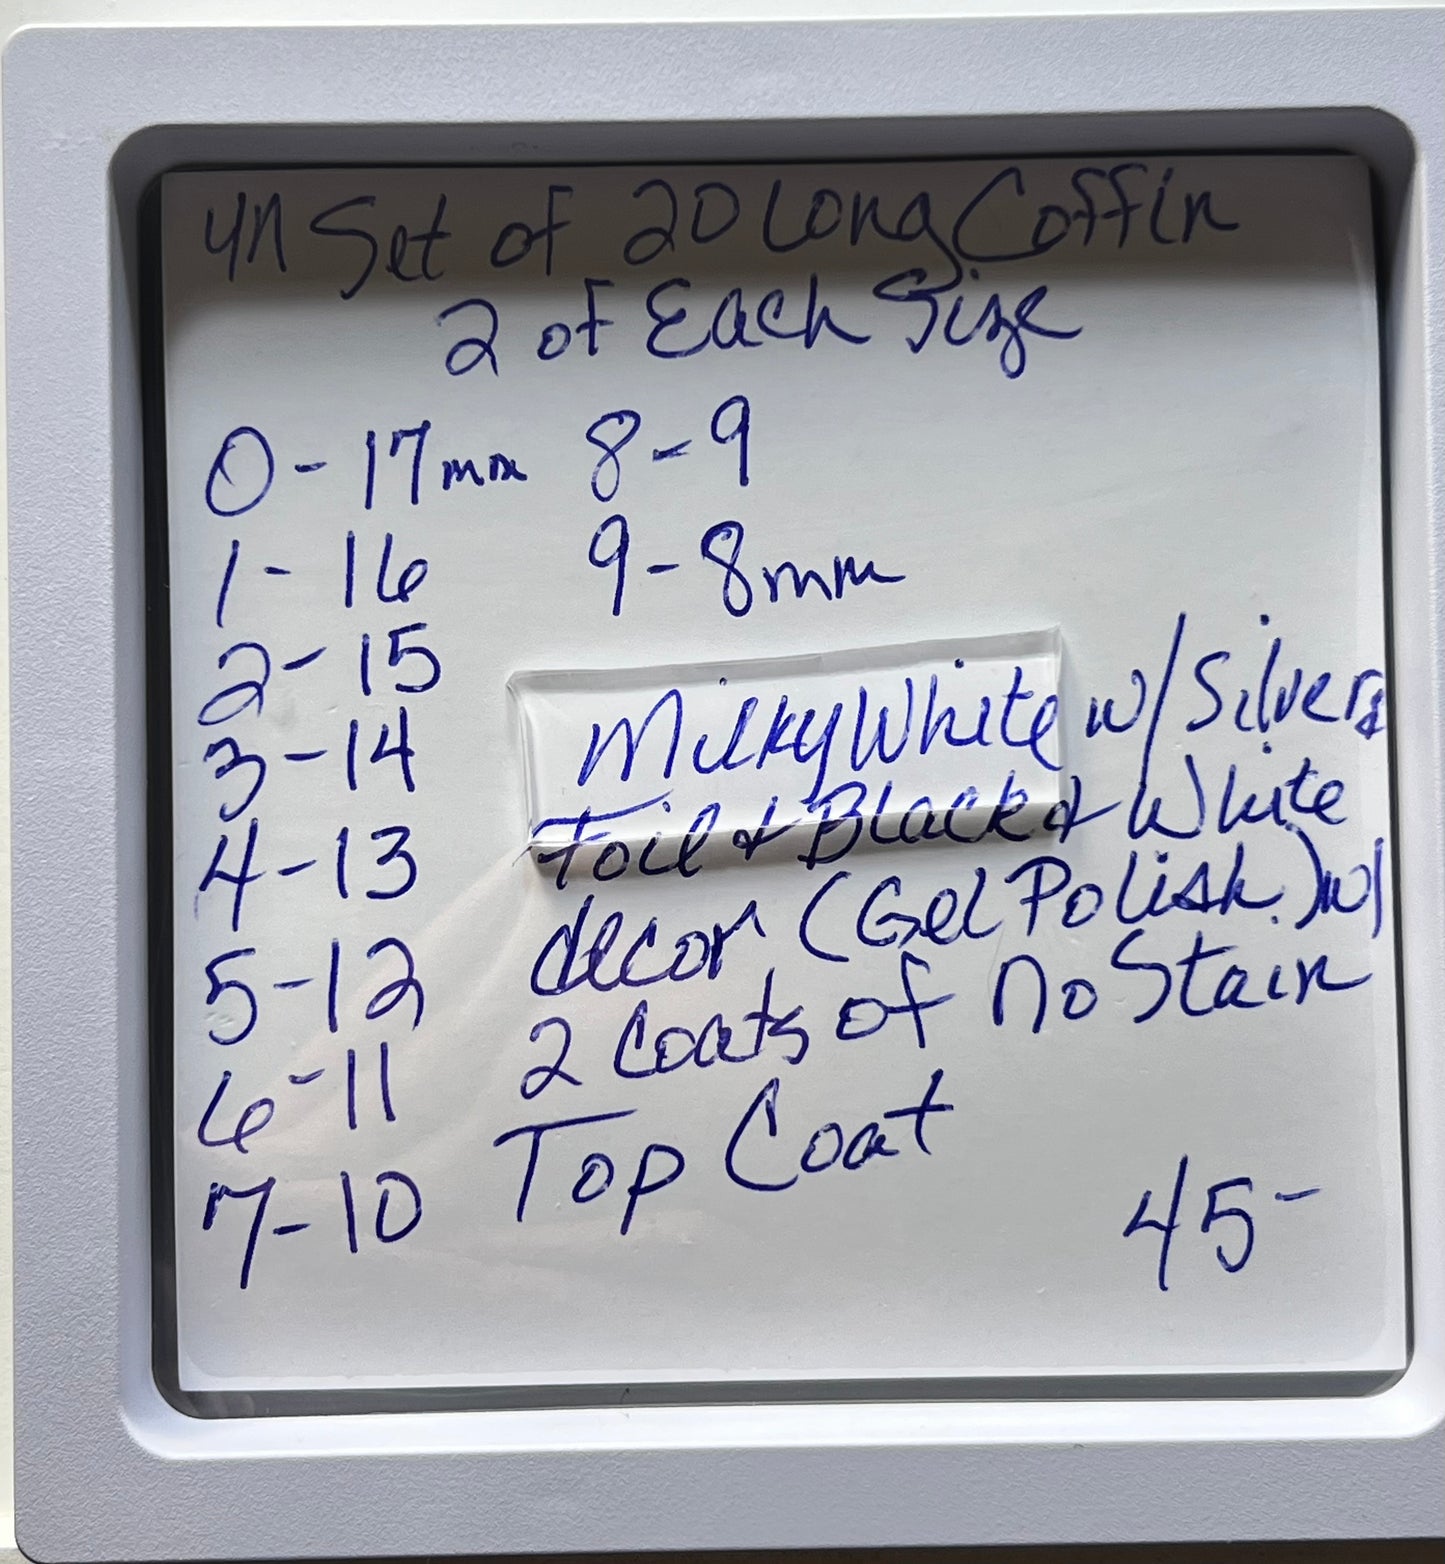 4n Set of 20 Long Coffin
2 of Each Size
0 - 17mm
1 - 16
2 - 15
3 - 14
4 - 13
5 - 12
6 - 11
7 - 10
8 - 9
9 - 8mm
Milky White w/Silver
Foil & Black & White
decor (Gel Polish) w/
2 Coats of no Stain
Top Coat
45-